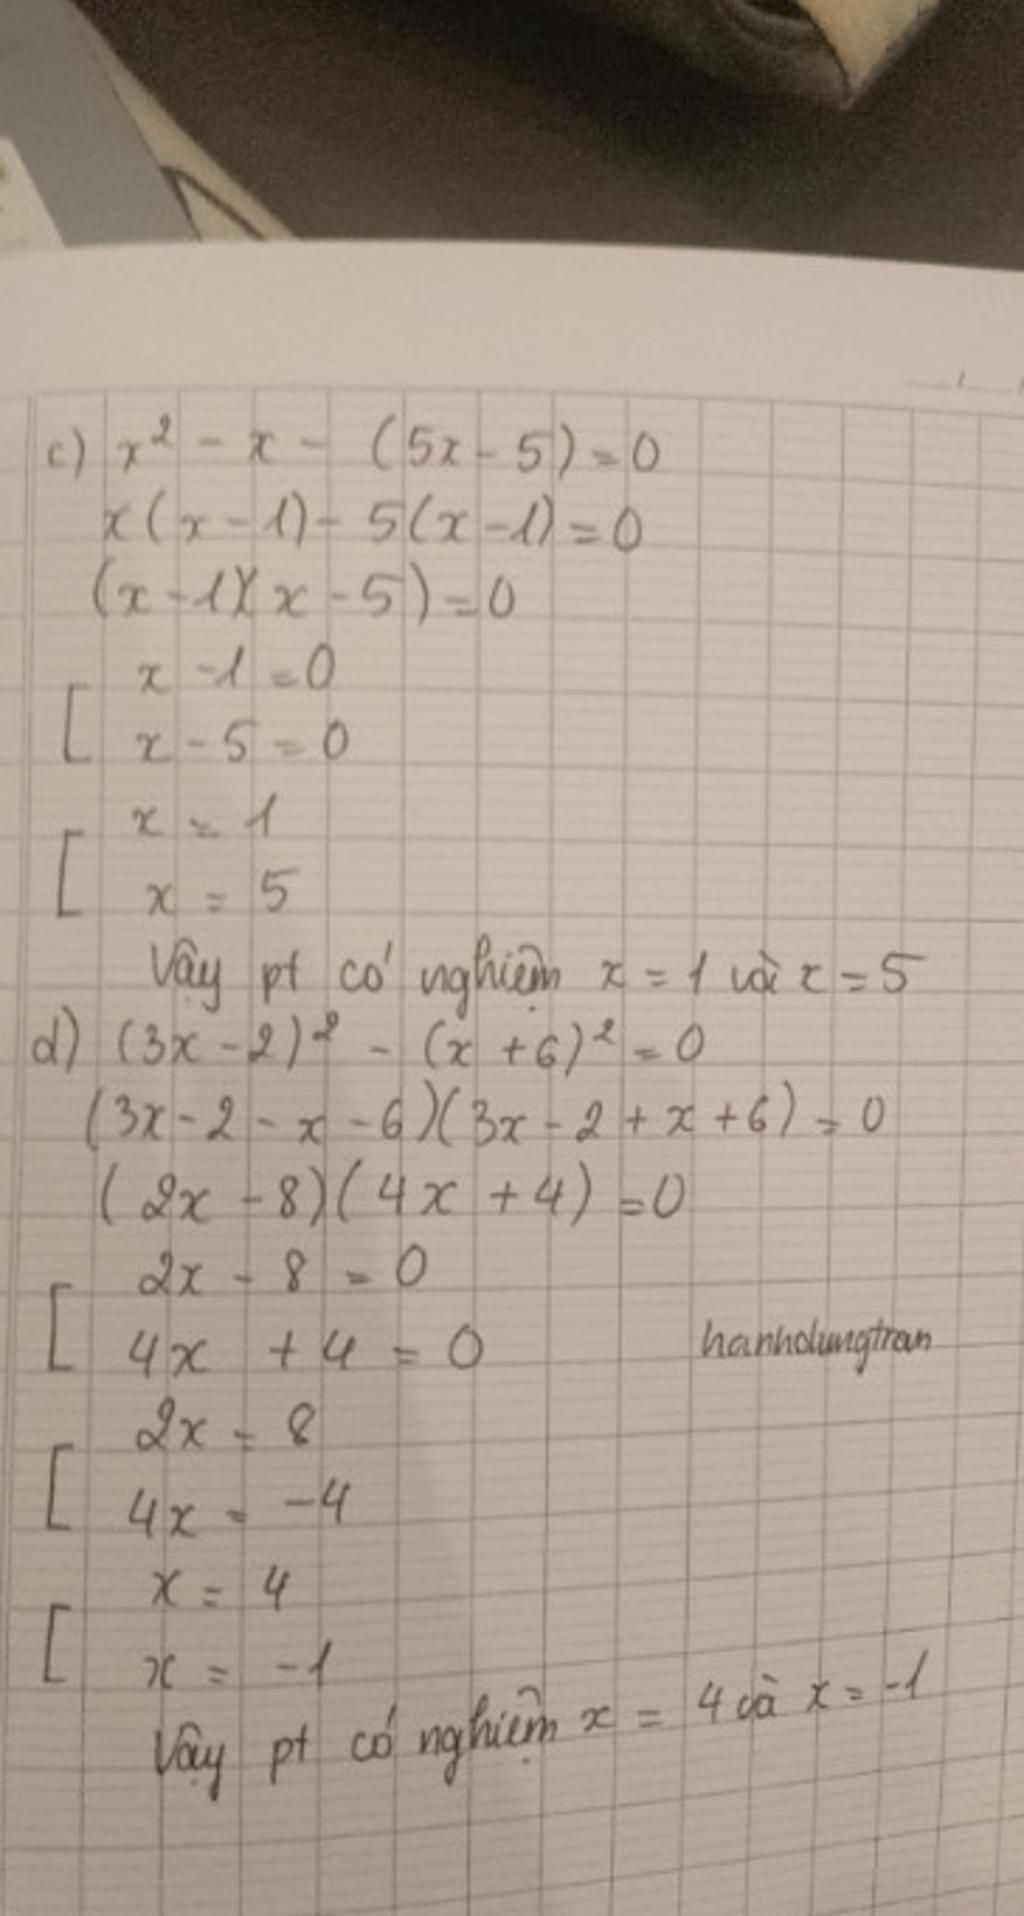 c) x² - x - (5x - 5) = 0
x(x - 1) - 5(x - 1) = 0
(x - 1)(x - 5) = 0
[ x - 1 = 0
x - 5 = 0
[ x = 1
x = 5
Vậy pt có nghiệm x = 1 và x = 5
d) (3x - 2)² - (x + 6)² = 0
(3x - 2 - x - 6)(3x - 2 + x + 6) = 0
(2x - 8)(4x + 4) = 0
[ 2x - 8 = 0
4x + 4 = 0
hanhdungtran
[ 2x = 8
4x = -4
[ x = 4
x = -1
Vậy pt có nghiệm x = 4 và x = -1